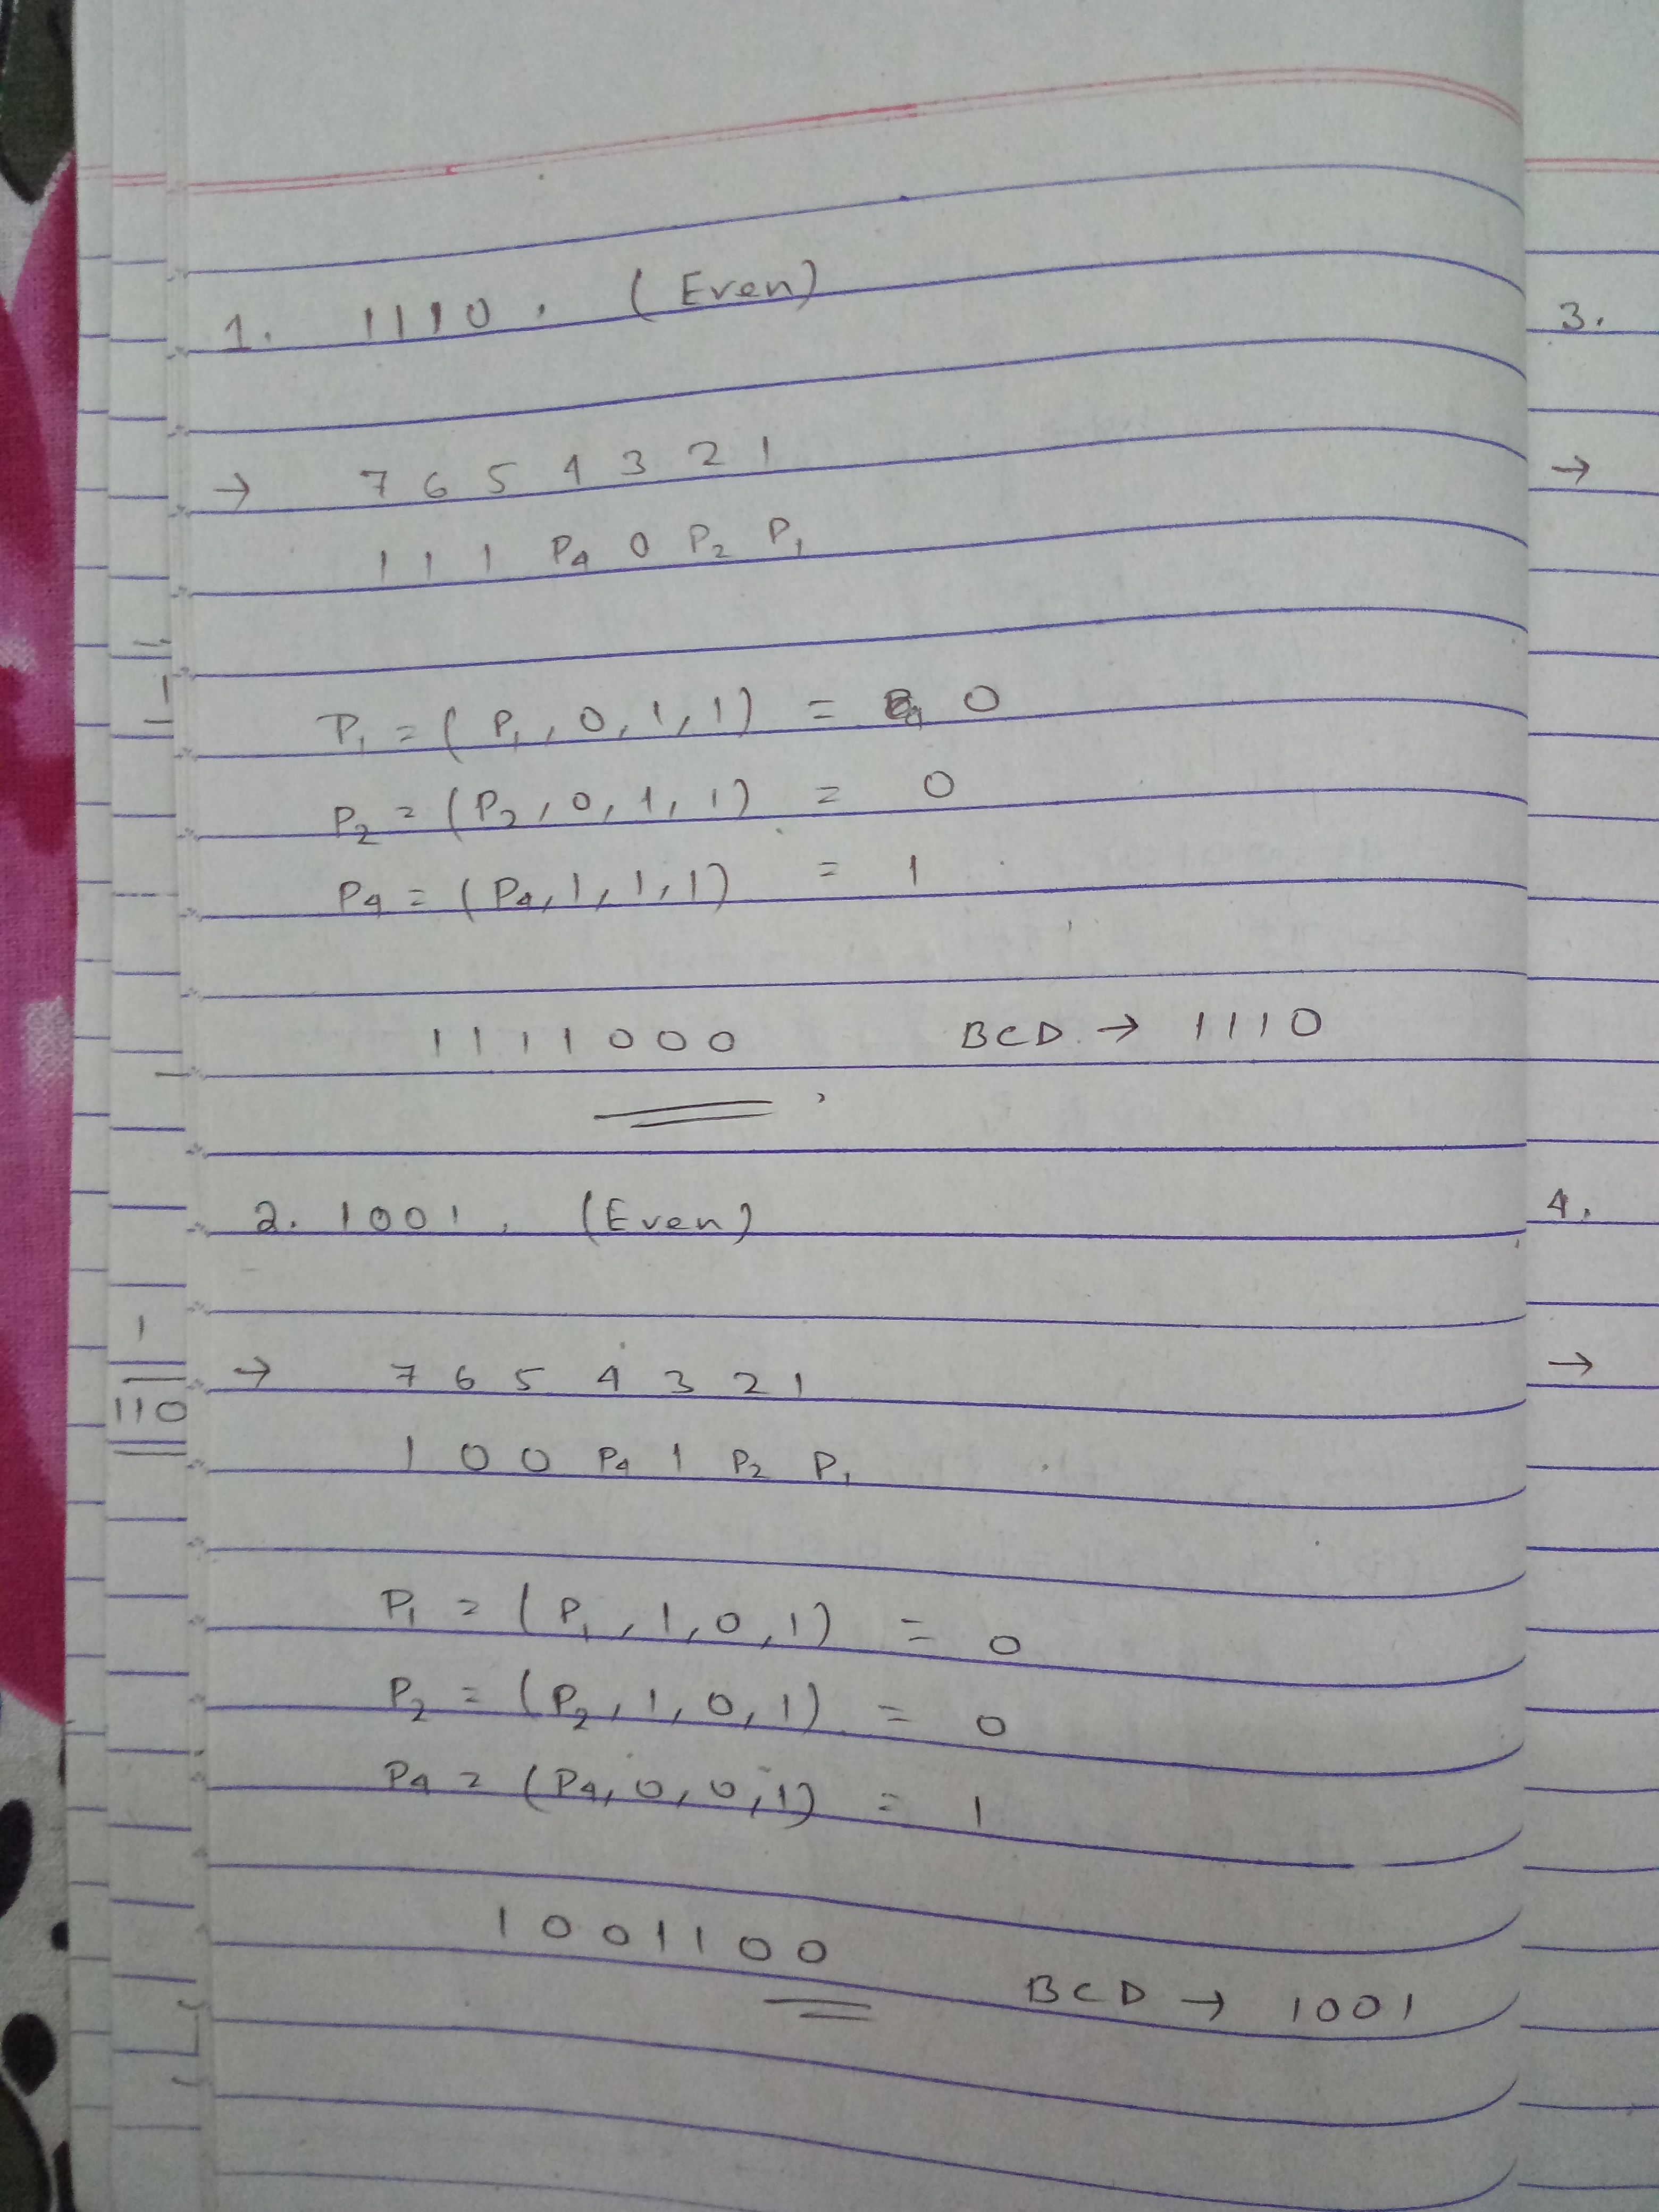 1. 1110. (Even)
→ 7 6 5 4 3 2 1
1 1 1 P4 0 P2 P1
P1 = (P1, 0, 1, 1) = 0
P2 = (P2, 0, 1, 1) = 0
P4 = (P4, 1, 1, 1) = 1
1111000 BCD → 1110
2. 1001. (Even)
→ 7 6 5 4 3 2 1
1 0 0 P4 1 P2 P1
P1 = (P1, 1, 0, 1) = 0
P2 = (P2, 1, 0, 1) = 0
P4 = (P4, 0, 0, 1) = 1
1001100
BCD → 1001
1
1
110
3.
→
4.
→